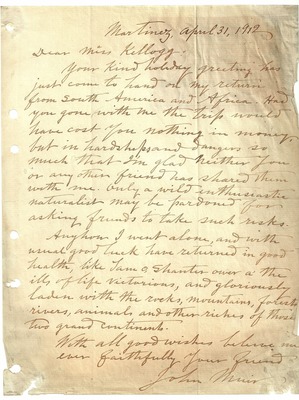 Martinez, April 31, 1912
Dear Miss Kellogg:
Your kind holiday greeting has
just come to hand on my return
from South-America and Africa. Had
you gone with me the trip would
have cost you nothing in money,
but in hardships and dangers so
much that I'm glad neither you
or any other friend has shared them
with me. Only a wild enthusiastic
naturalist may be pardoned for
asking friends to take such risks.
Anyhow I went alone, and with
usual good luck have returned in good
health, like Tam o Shanter over a' the
ills of life victorious, and gloriously
laden with the rocks, mountains, forests
rivers, animals and other riches of those
two grand continents.
With all good wishes believe me
ever faithfully your friend
John Muir